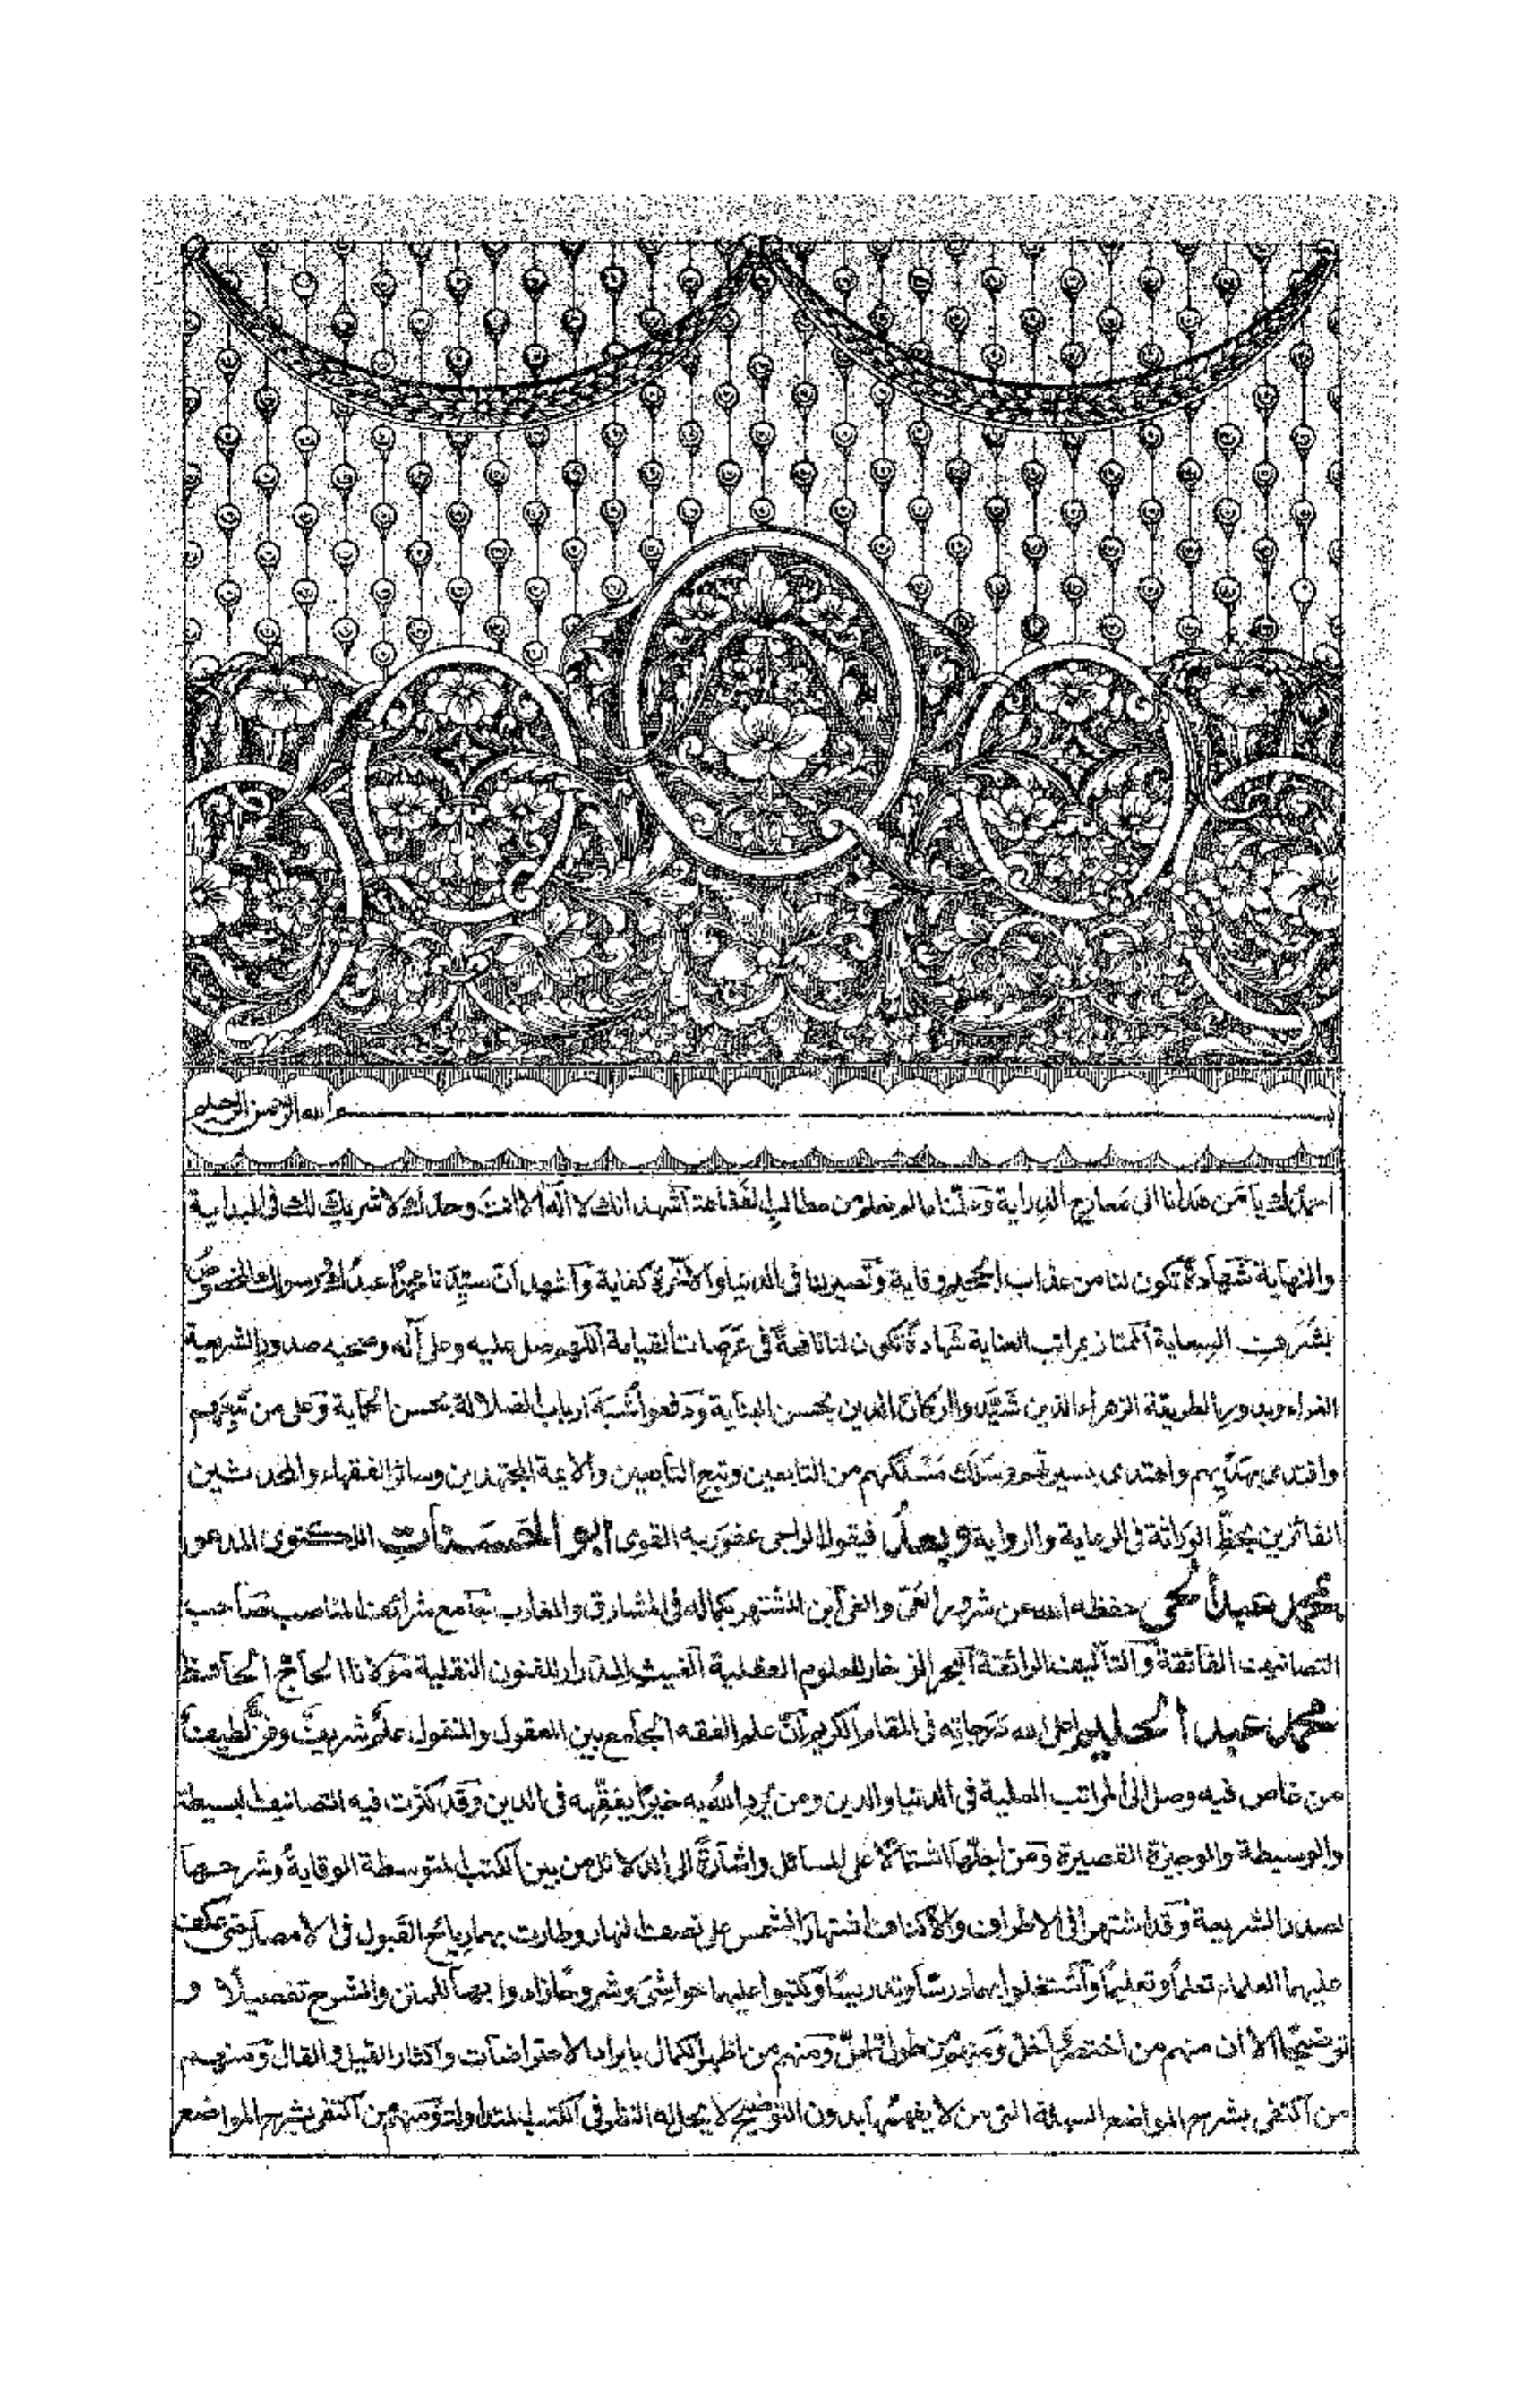 بسم الله الرحمن الرحيم
احمدك يا من هدانا الى معارج الدراية وعلّمنا ما لم نعلم من مطالب الفقاهة اشهد انك لا اله الا انت وحدك لا شريك لك فى البداية
والنهاية شهادةً تكون لنا من عذاب الجحيم وقاية وتصير لنا فى الدنيا والآخرة كفاية واشهد انّ سيّدنا محمدًا عبدك ورسولك المخصوصُ
بشرهت السعاية الممتاز بمراتب العناية شهادةً تكون لنا نافعةً فى عرصات القيامة اللهم صل عليه وعلى آله وصحبه صدور الشريعة
الغراء وبدور الطريقة الزهراء الذين شيّدوا اركان الدين بحسن البناية ودفعوا شُبَهَ ارباب الضلالة بحسن الحماية وعلى من تبعهم
واقتدى بهَدْيهم واهتدى بسيرتهم وسلك مسلكهم من التابعين وتبع التابعين والأيمة المجتهدين وسائر الفقهاء والمحدثين
الفائزين بحظّ الوراثة فى الرعاية والرواية وبعدُ فيقول الراجى عفو ربه القوى ابو الحسنات اللكنوى المدعو
بمحمد عبد الحى حفظه الله عن شرور الغىّ والغى ابن المشتهر بكماله فى المشارق والمغارب جامع شرائف المناصب صاحب
التصانيف الفائقة والتآليف الرائقة البحر الزخار للعلوم العقلية الغيث المدرار للفنون النقلية مولانا الحاج الحافظ
محمد عبد الحليم اعلى الله درجاته فى المقام الكريم انّ علم الفقه الجامع بين المعقول والمنقول علمٌ شريفٌ وفنٌّ لطيفٌ
من غاص فيه وصل الى المراتب العلية فى الدنيا والدين ومن يُرِدِ اللهُ به خيرًا يفقّهه فى الدين وقد كثرت فيه التصانيف البسيطة
والوسيطة والوجيزة القصيرة ومن اجلّها اشتمالاً على المسائل واشارةً الى الدلائل من بين الكتب المتوسطة الوقايةُ وشرحها
لصدر الشريعة وقد اشتهرا فى الاطراف والاكناف اشتهار الشمس على نصف النهار وطارت بهما رياح القبول فى الامصار حتى عكف
عليهما العلماء تعلمًا وتعليمًا واشتغلوا بهما درسًا وتدريسًا وكتبوا عليهما حواشىَ وشروحًا زادوا بها للمتن والشرح تفصيلًا و
توضيحًا الا ان منهم من اختصر فأخلّ ومنهم من طول فأملّ ومنهم من اظهر الكمال بايراد الاعتراضات واكثار القيل والقال ومنهم
من اكتفى بشرح المواضع السهلة التى من لا يفهمها بدون التوضيح لا يجوز له النظر فى الكتب المتداولة ومنهم من اكتفى بشرح المواضع